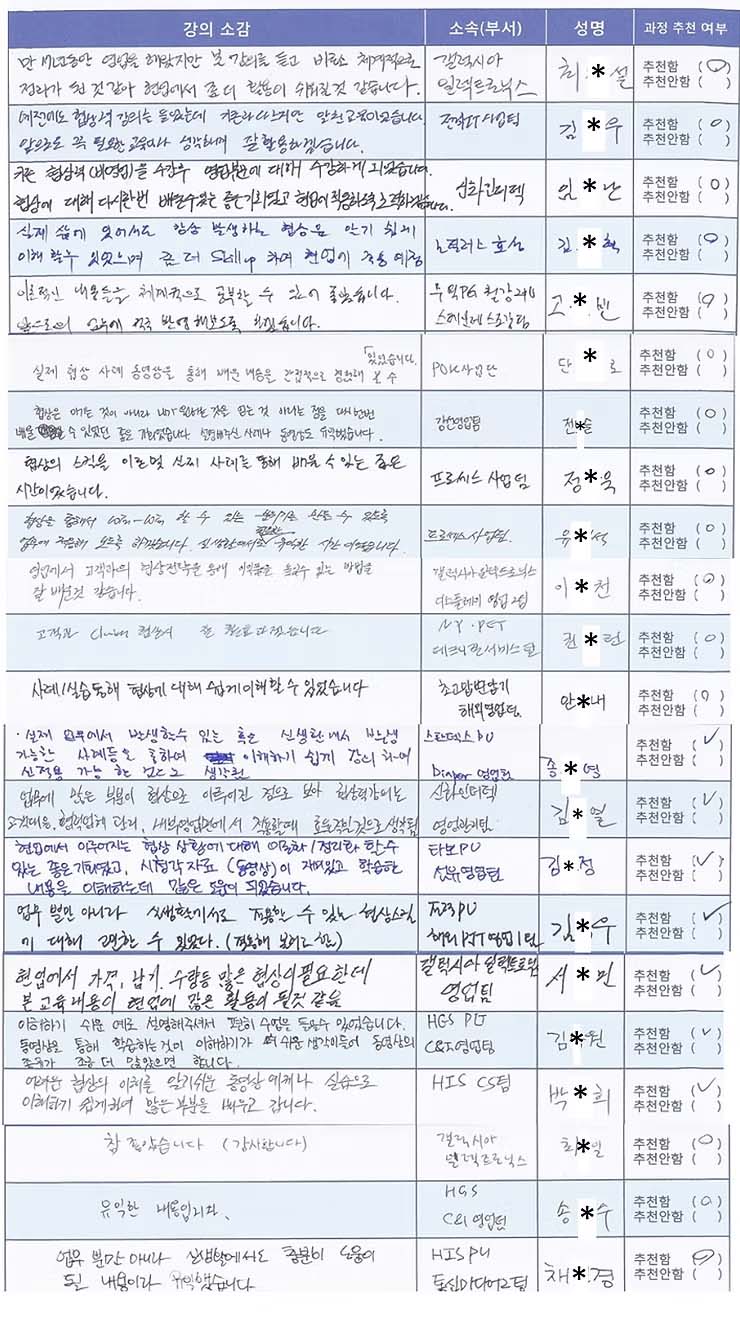 강의 소감 소속(부서) 성명 과정 추천 여부
만 동안 영업을 해왔지만 본 강의를 듣고 비로소 체계적으로
정리가 된 것 같아 현업에서 좀 더 활용이 쉬워질 것 같습니다.
갤럭시아
일렉트로닉스
최 * 설
추천함 ( )
추천안함 ( )
예전에도 협상력 강의를 들었는데
앞으로도 꼭 필요한 교육이라 생각하며 잘 활용하겠습니다.
김 * 우
추천함 ( )
추천안함 ( )
협상에 대해 다시한번 배울수있는 좋은기회였고 현업에 적용하도록 노력하겠습니다.
신화인터텍
임 * 난
추천함 ( )
추천안함 ( )
실제 삶에 있어서도 항상 발생하는 협상을 알기 쉽게
이해 할수 있었으며 좀 더 Skill up 하여 현업에 적용 예정
노틸러스 효성
김 * 혁
추천함 ( )
추천안함 ( )
이론적인 내용들을 체계적으로 공부할 수 있어 좋았습니다.
앞으로의 업무에 적극 반영해보도록 하겠습니다.
무역PG 철강2PU
스테인레스로강팀
고 * 빈
추천함 ( )
추천안함 ( )
있었습니다.
실제 협상 사례 동영상을 통해 배운 내용을 간접적으로 경험해 볼 수
POK사업단
단 * 로
추천함 ( )
추천안함 ( )
협상은 이기는 것이 아니라 내가 원하는 것을 얻는 것 이라는 점을 다시한번
배울 수 있었던 좋은 기회였습니다. 설명해주신 사례나 동영상도 유익했습니다.
강선영업팀
전*슬
추천함 ( )
추천안함 ( )
협상의 스킬을 이론 및 실제 사례를 통해 배울 수 있는 좋은
시간이었습니다.
프로세스 사업팀
정 * 욱
추천함 ( )
추천안함 ( )
협상을 통해서 win-win 할 수 있는 분위기를 만들 수 있도록
업무에 적용해 보도록 하겠습니다. 실생활에서도 유익한 시간이었습니다.
프로세스사업팀
유 * 석
추천함 ( )
추천안함 ( )
영업에서 고객과의 협상전략을 통해 이익을 높일수 있는 방법을
잘 배운것 같습니다.
갤럭시아일렉트로닉스
디스플레이 영업 2팀
이 * 천
추천함 ( )
추천안함 ( )
고객과 Claim 협상시 잘 활용하겠습니다
NY·PET
테크니칸서비스팀
권 * 턴
추천함 ( )
추천안함 ( )
사례/실습통해 협상에 대해 쉽게 이해할 수 있었습니다
초고압변압기
해외영업팀.
안*내
추천함 ( )
추천안함 ( )
· 실제 업무에서 발생할수 있는 혹은 실생활에서 발생
가능한 사례들을 통하여 이해하기 쉽게 강의 하여
실적용 가능 한 것으로 생각됨
스판덱스 PU
Diaper 영업팀
종 * 영
추천함 ( )
추천안함 ( )
업무에 많은 부분이 협상으로 이루어진 점으로 보아 협상력강의는
고객대응, 협력업체 관리, 내부영업관에서 적용할때 효율적인것으로 생각됨
신화인터텍
영업관리팀
김 * 열
추천함 ( )
추천안함 ( )
현업에서 이루어지는 협상 상황에 대해 이론화/정리화 할수
있는 좋은기회였고, 시청각 자료 (동영상)이 재미있고 학습한
내용을 이해하는데 많은 도움이 되었습니다.
타보PU
섬유영업팀
김*정
추천함 ( )
추천안함 ( )
업무 뿐만 아니라 실생활에서도 적용할 수 있는 협상스킬
에 대해 고민할 수 있었다. (적용해 보려고 함)
해외PJT영업1팀
김*우
추천함 ( )
추천안함 ( )
현업에서 가격, 납기, 수량등 많은 협상이 필요한데
본 교육내용이 현업에 많은 활용이 될것 같음
갤럭시아 일렉트로닉
영업팀
서 * 민
추천함 ( )
추천안함 ( )
이해하기 쉬운 예로 설명해주셔서 편히 수업을 들을수 있었습니다.
동영상을 통해 학습하는것이 이해하기가 더 쉬운 생각이들어 동영상의
종류가 조금 더 많았으면 합니다.
HGS PU
C&I영업팀
김*원
추천함 ( )
추천안함 ( )
어려운 협상의 이해를 알기쉬운 동영상 예제나 실습으로
이해하기 쉽게하여 많은 부분을 배우고 갑니다.
HIS CS팀
박 * 희
추천함 ( )
추천안함 ( )
참 좋았습니다 (감사합니다)
갤럭시아
일렉트로닉스
최*일
추천함 ( )
추천안함 ( )
유익한 내용입니다.
HGS
C&I 영업팀
송 * 수
추천함 ( )
추천안함 ( )
업무 뿐만 아니라 실생활에서도 충분히 도움이
될 내용이라 유익했습니다
HIS PU
통신미디어2팀
채*경
추천함 ( )
추천안함 ( )